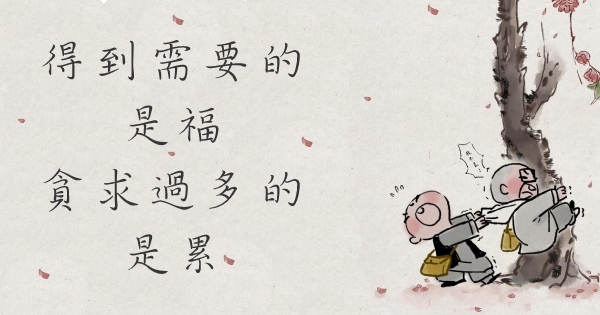 得到需要的
是福
貪求過多的
是累